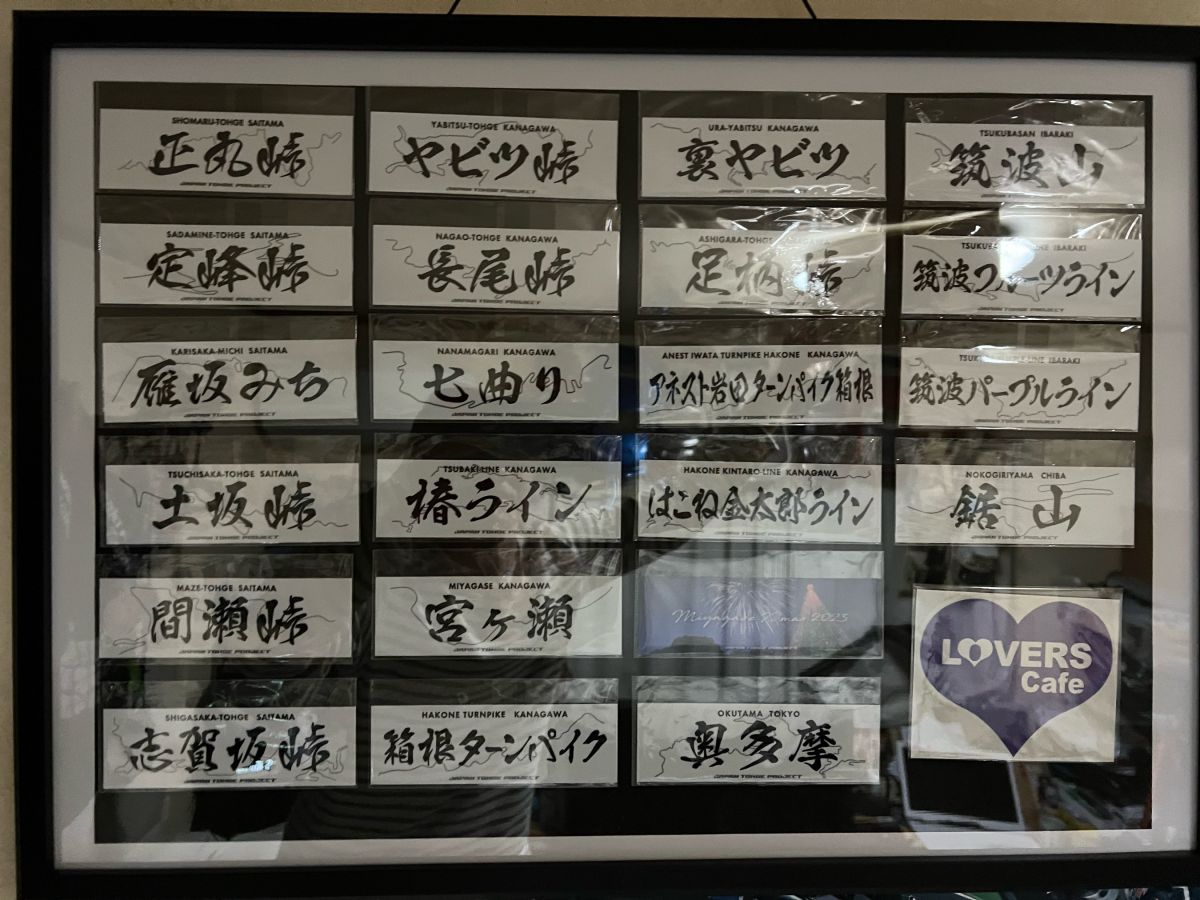 SHOMARU-TOHGE SAITAMA
正丸峠
JAPAN TOHGE PROJECT
YABITSU-TOHGE KANAGAWA
ヤビツ峠
JAPAN TOHGE PROJECT
URA-YABITSU KANAGAWA
裏ヤビツ
JAPAN TOHGE PROJECT
TSUKUBASAN IBARAKI
筑波山
JAPAN TOHGE PROJECT
SADAMINE-TOHGE SAITAMA
定峰峠
JAPAN TOHGE PROJECT
NAGAO-TOHGE KANAGAWA
長尾峠
JAPAN TOHGE PROJECT
ASHIGARA-TOHGE
足柄峠
JAPAN TOHGE PROJECT
IBARAKI
筑波フルーツライン
JAPAN TOHGE PROJECT
KARISAKA-MICHI SAITAMA
雁坂みち
JAPAN TOHGE PROJECT
NANAMAGARI KANAGAWA
七曲り
JAPAN TOHGE PROJECT
ANEST IWATA TURNPIKE HAKONE KANAGAWA
アネスト岩田ターンパイク箱根
JAPAN TOHGE PROJECT
IBARAKI
筑波パープルライン
JAPAN TOHGE PROJECT
TSUCHISAKA-TOHGE SAITAMA
土坂峠
JAPAN TOHGE PROJECT
TSUBAKI-LINE KANAGAWA
椿ライン
JAPAN TOHGE PROJECT
HAKONE KINTARO-LINE KANAGAWA
はこね金太郎ライン
JAPAN TOHGE PROJECT
NOKOGIRIYAMA CHIBA
鋸山
JAPAN TOHGE PROJECT
MAZE-TOHGE SAITAMA
間瀬峠
JAPAN TOHGE PROJECT
MIYAGASE KANAGAWA
宮ヶ瀬
JAPAN TOHGE PROJECT
Miyagase Xmas 2023
JAPAN TOHGE PROJECT
LOVERS
Cafe
SHIGASAKA-TOHGE SAITAMA
志賀坂峠
JAPAN TOHGE PROJECT
HAKONE TURNPIKE KANAGAWA
箱根ターンパイク
JAPAN TOHGE PROJECT
OKUTAMA TOKYO
奥多摩
JAPAN TOHGE PROJECT